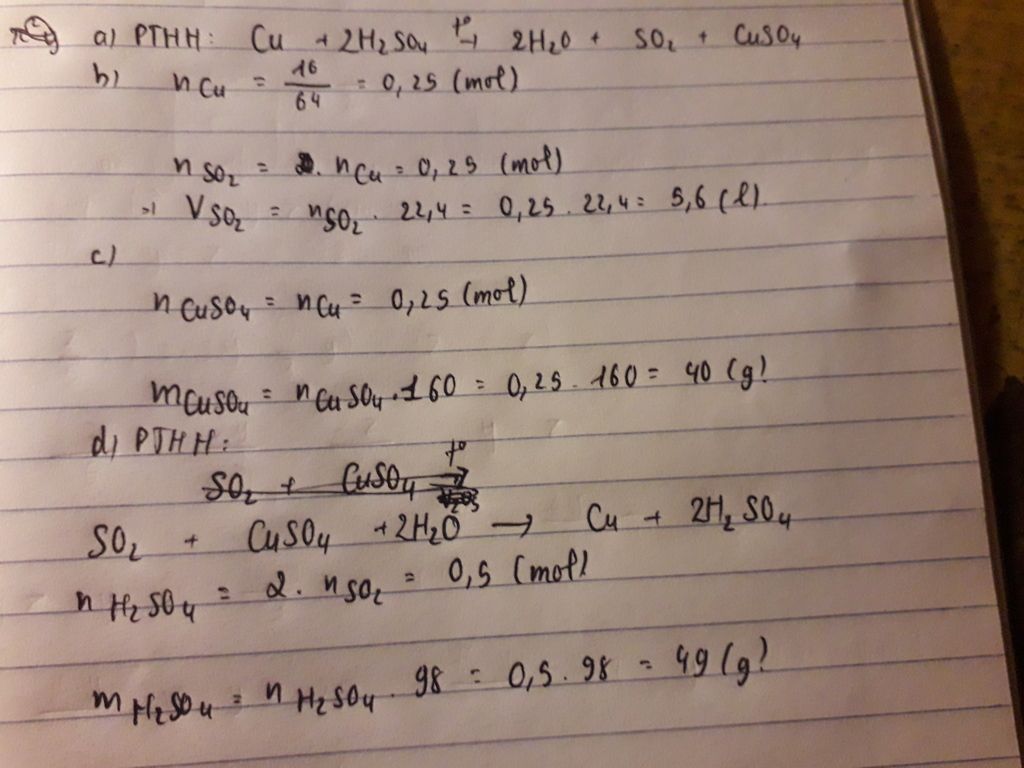 a) PTHH: Cu + 2H₂SO₄ t° → 2H₂O + SO₂ + CuSO₄
b) n Cu = 16/64 = 0,25 (mol)
n SO₂ = . n Cu = 0,25 (mol)
=) V SO₂ = n SO₂ . 22,4 = 0,25 . 22,4 = 5,6 (l).
c)
n CuSO₄ = n Cu = 0,25 (mol)
m CuSO₄ = n CuSO₄ . 160 = 0,25 . 160 = 40 (g)
d) PTHH:
SO₂ + CuSO₄ t° →
SO₂ + CuSO₄ + 2H₂O → Cu + 2H₂SO₄
n H₂SO₄ = 2. n SO₂ = 0,5 (mol)
m H₂SO₄ = n H₂SO₄ . 98 = 0,5 . 98 = 49 (g)